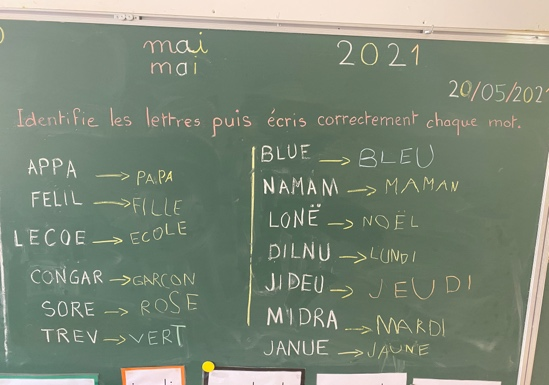 mai 2021
mai
20/05/2021
Identifie les lettres puis écris correctement chaque mot.
APPA → PAPA
FELIL → FILLE
LECOE → ECOLE
CONGAR → GARCON
SORE → ROSE
TREV → VERT
BLUE → BLEU
NAMAM → MAMAN
LONË → NOËL
DILNU → LUNDI
JIDEU → JEUDI
MIDRA → MARDI
JANUE → JAUNE